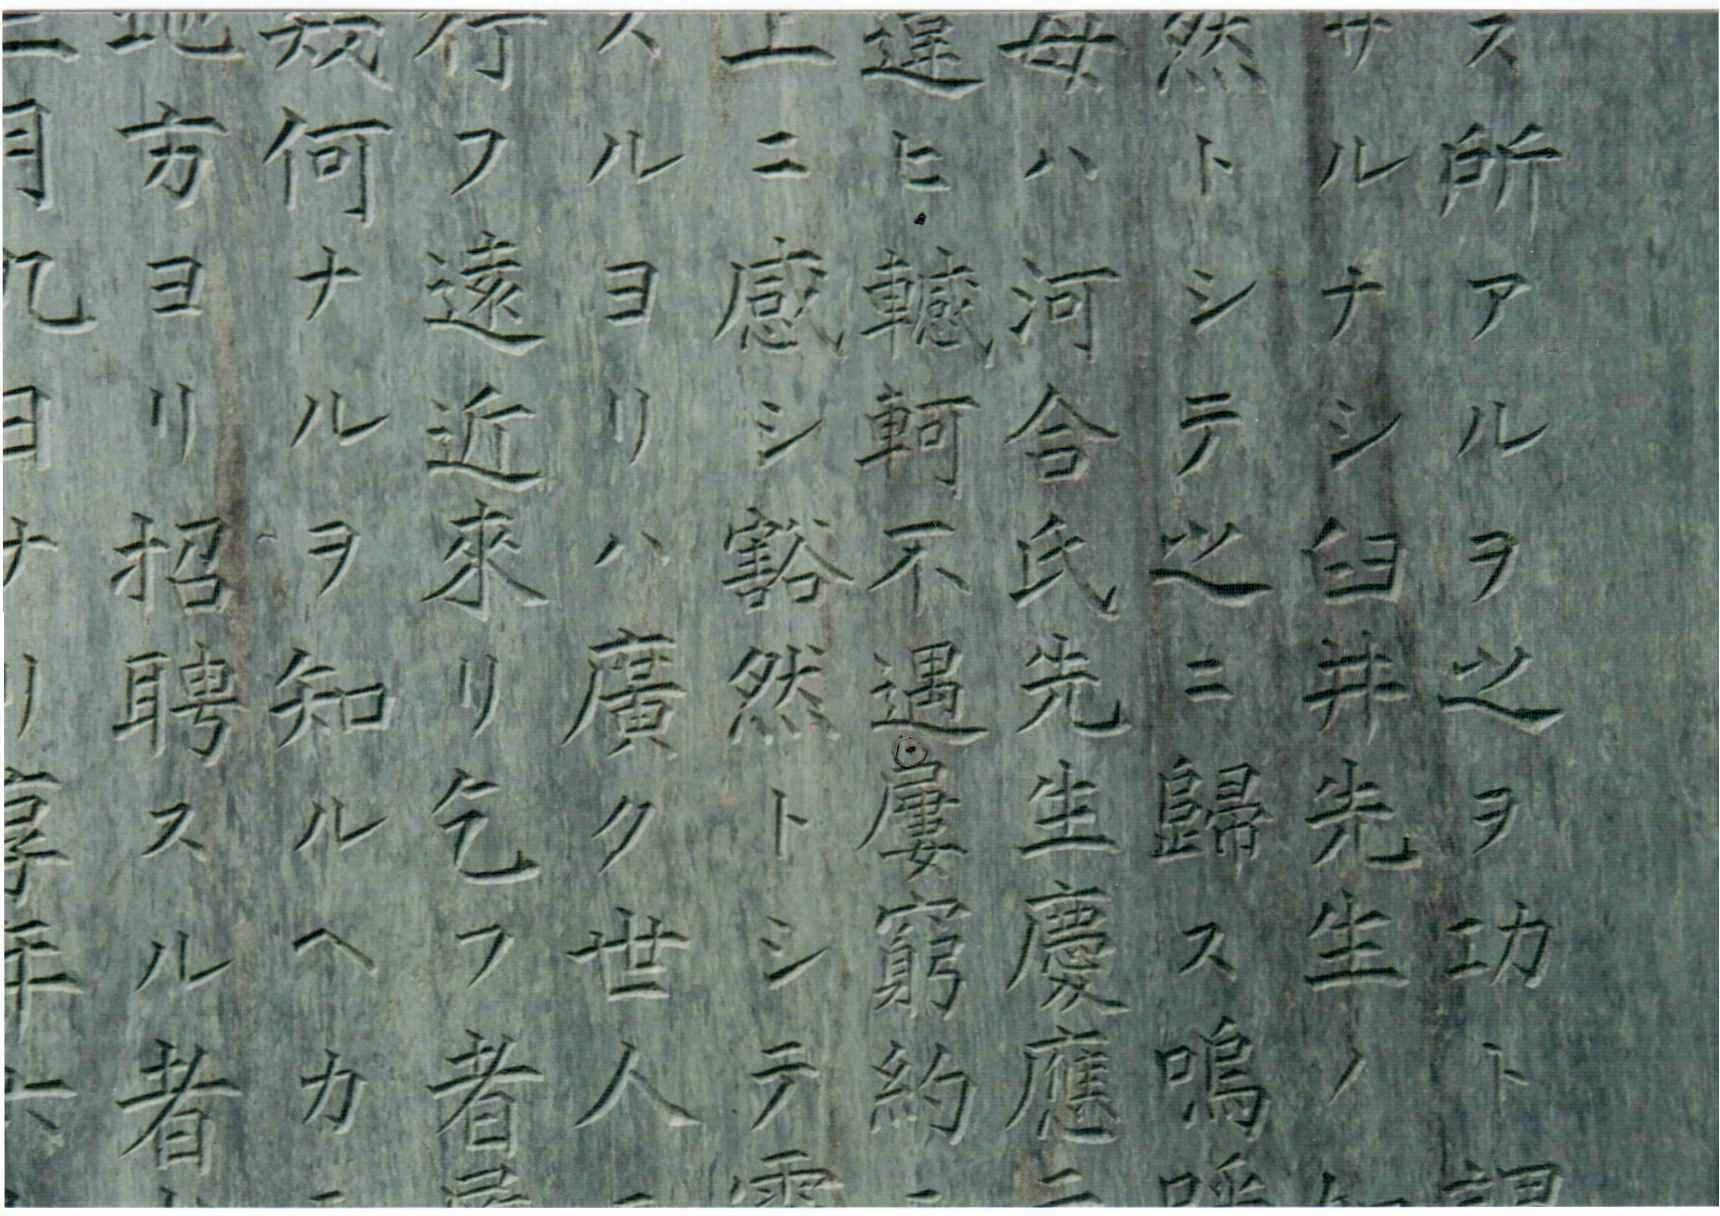 ス所アルヲ之ヲ功ト謂
サルナシ臼井先生ノ如
然トシテ之ニ歸ス嗚呼
母ハ河合氏先生慶應二
違ヒ轗軻不遇屢窮約ニ
上ニ感シ豁然トシテ霊
スルヨリハ廣ク世人ニ
行フ遠近來リ乞フ者
幾何ナルヲ知ルヘカラ
地方ヨリ招聘スル者
三月九日ナリ享年六